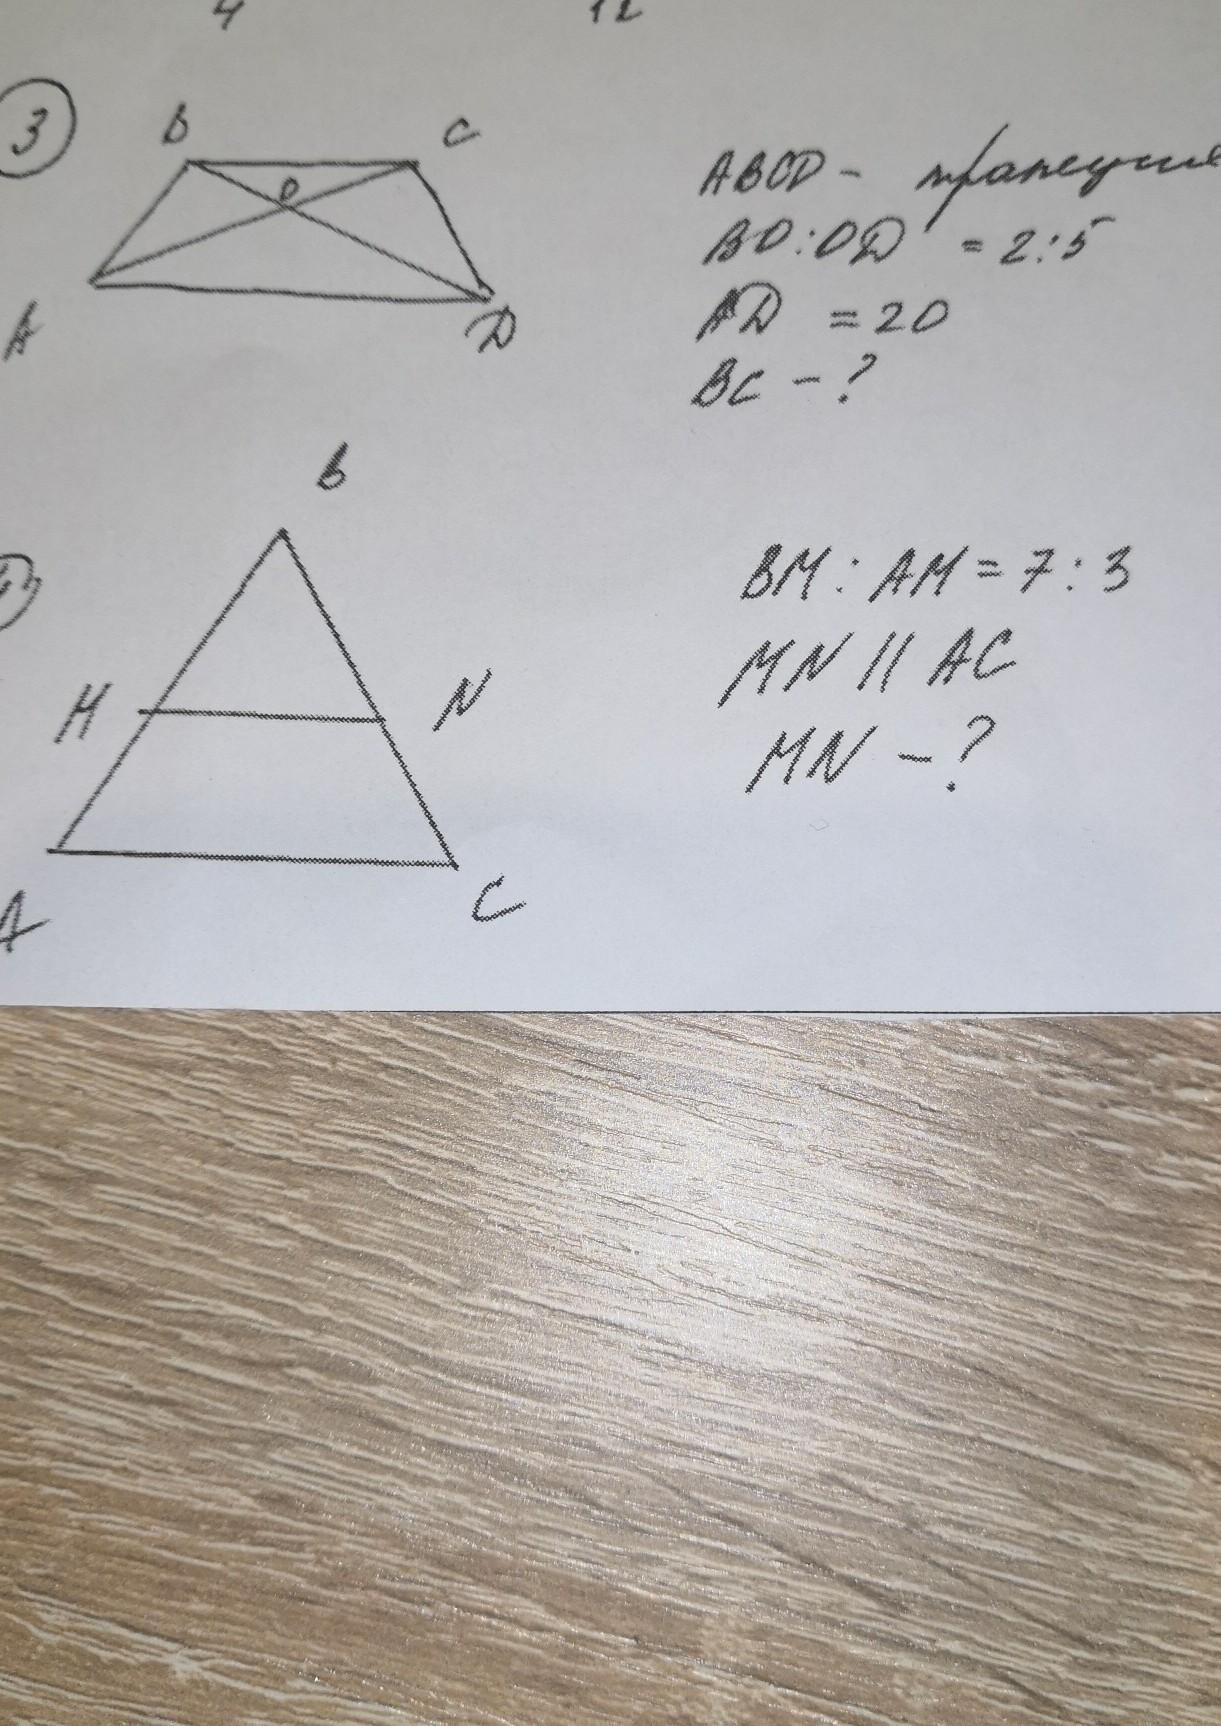 4 12
3
B C
O
A D
ABCD - трапеция
BO:OD = 2:5
AD = 20
BC - ?
B
M N
A C
BM : AM = 7 : 3
MN || AC
MN - ?